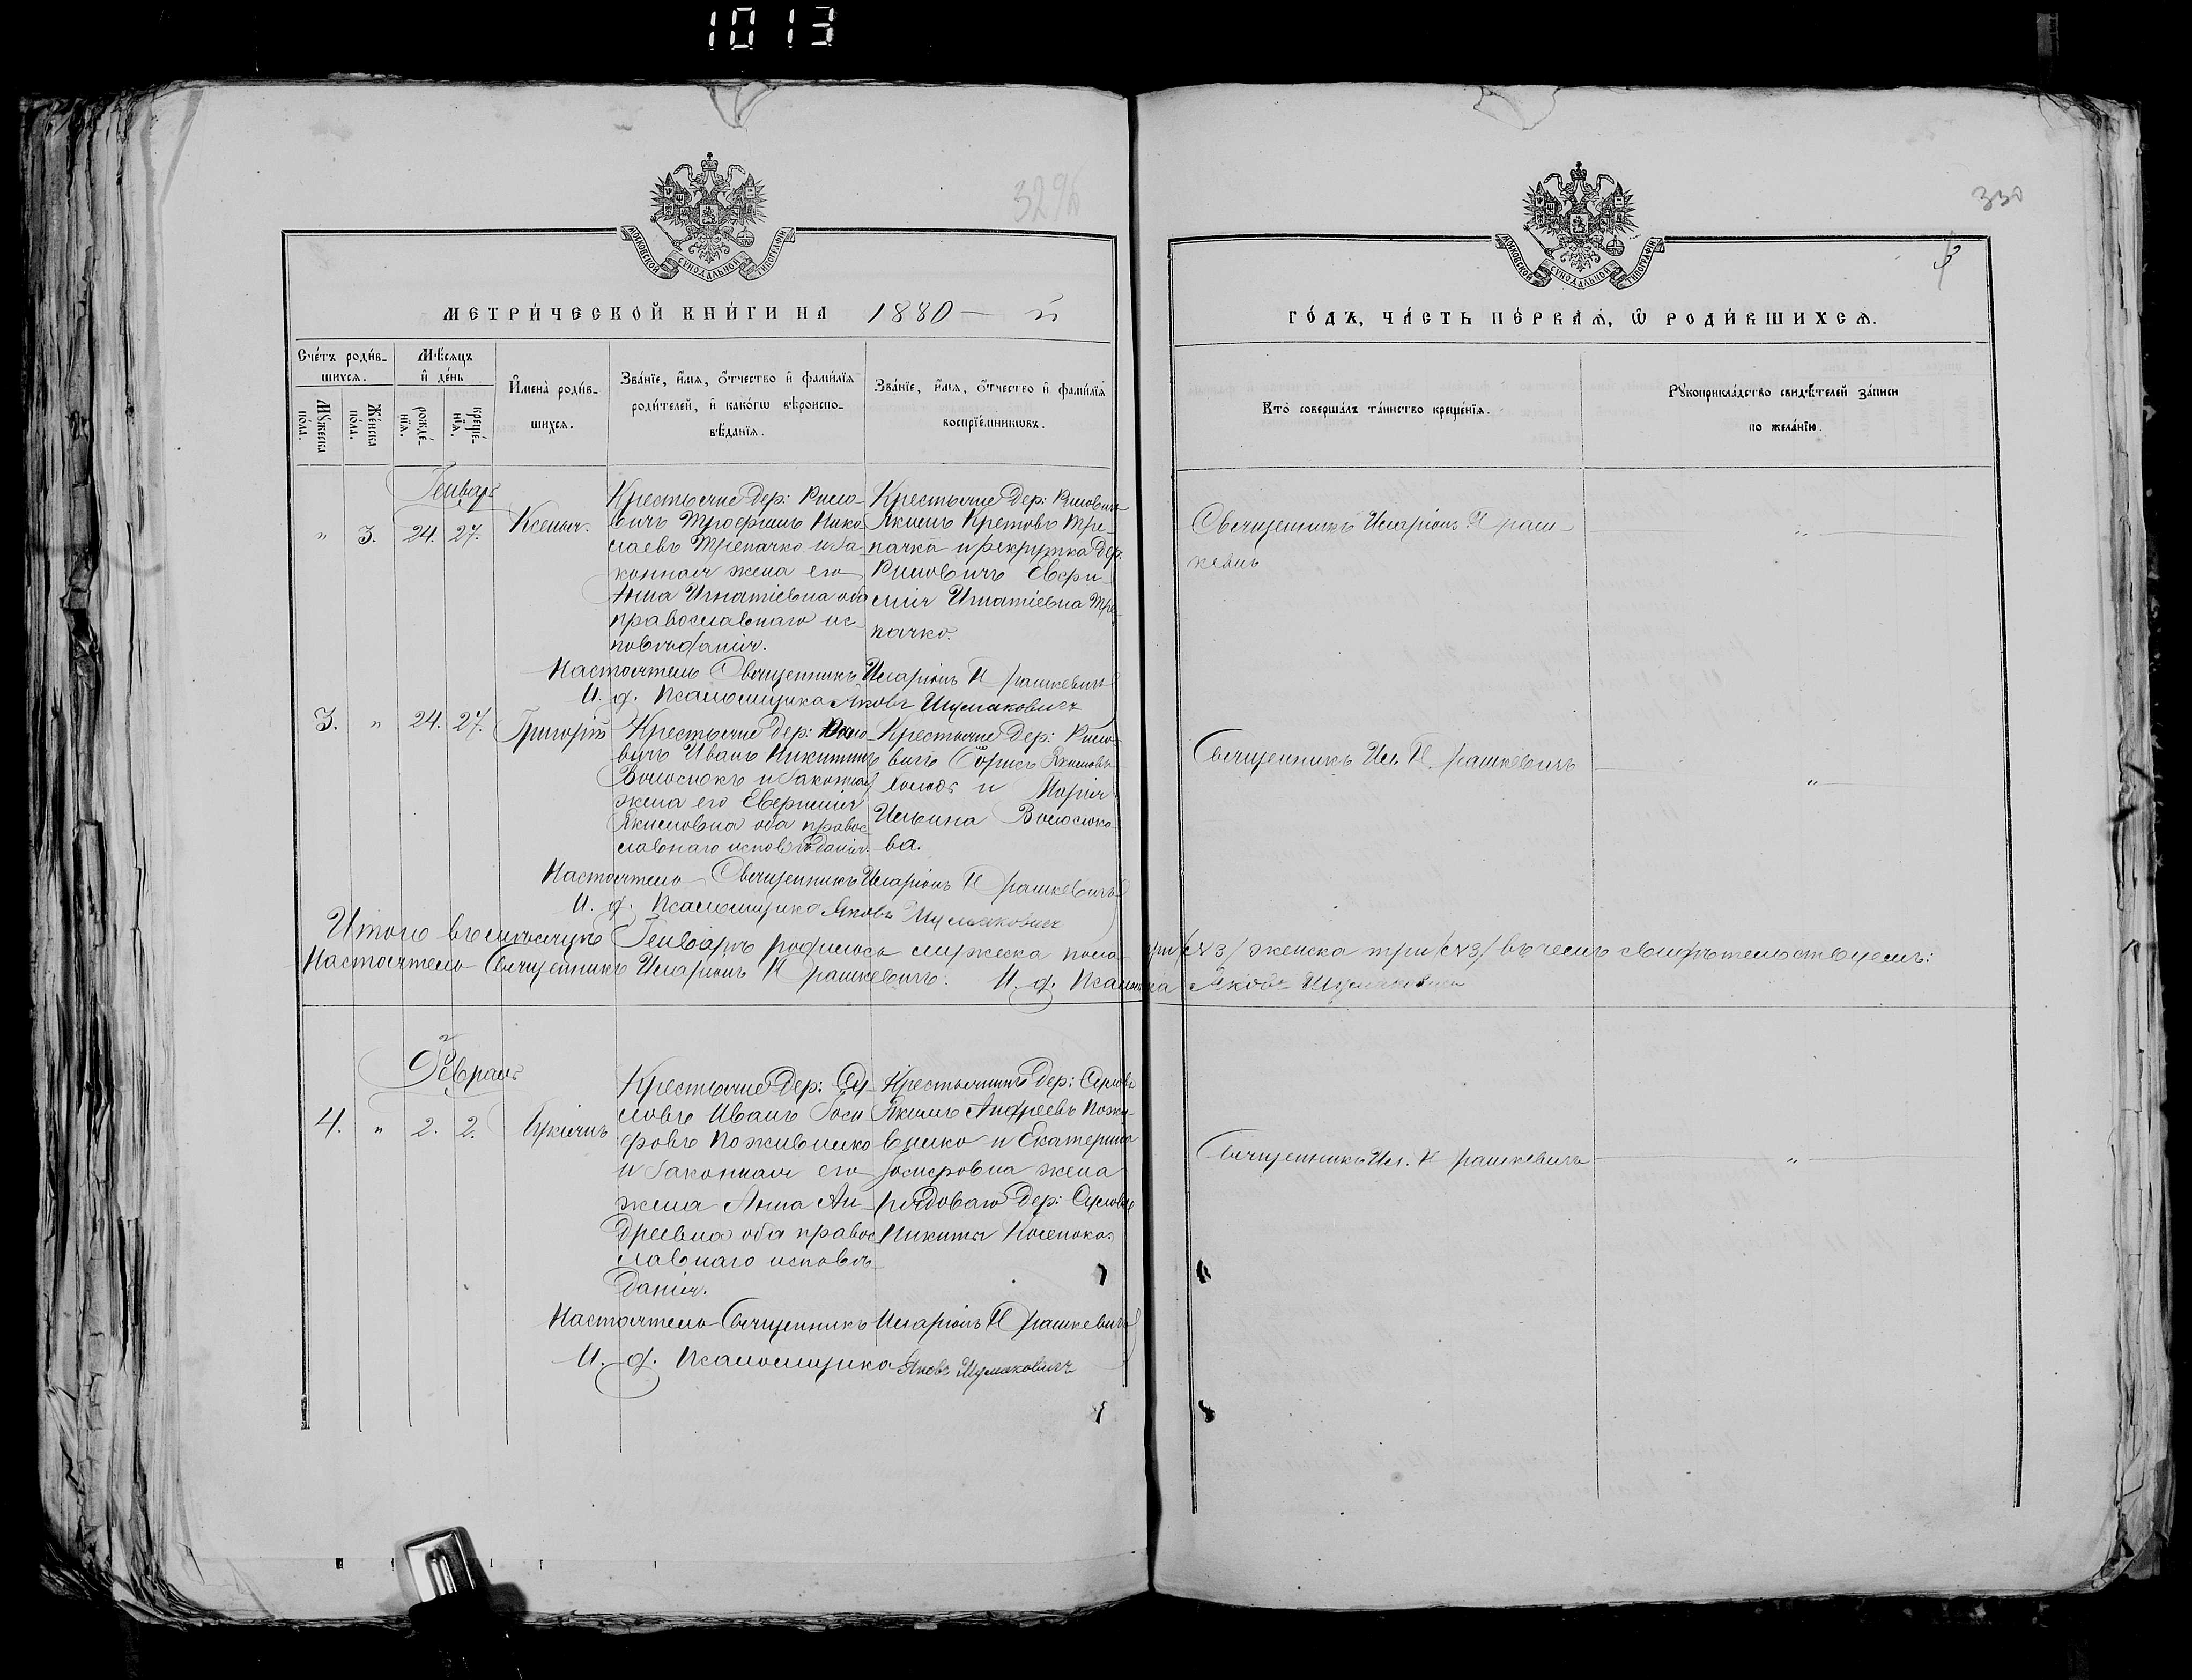 1013
329б
330
3
МОСКОВСКОЙ СѴНОДАЛЬНОЙ ТИПОГРАФІИ
МОСКОВСКОЙ СѴНОДАЛЬНОЙ ТИПОГРАФІИ
МЕТРИ́ЧЕСКОЙ КНИ́ГИ НА 1880 – й
ГО́ДЪ, ЧА́СТЬ ПЕ́РВАѦ, Ѡ РОДИ́ВШИХСѦ.
Сче́тъ роди́в-
шихсѧ.
Мѣ́сѧцъ
и҆ де́нь
Мꙋ́жеска по́ла.
Же́нска по́ла.
рожде́-нїѧ.
креще́-нїѧ.
И҆мена̀ роди́в-
шихсѧ.
Зва́нїе, и҆́мѧ, ѻ҆́тчество и҆ фами́лїѧ
роди́телей, и҆ како́гѡ вѣроиспо-
вѣ́данїѧ.
Зва́нїе, и҆́мѧ, ѻ҆́тчество и҆ фами́лїѧ
воспрїе́мникѡвъ.
Кто̀ соверша́лъ та́инство креще́нїѧ.
Рꙋкоприкла́дство свидѣ́телей за́писи
по жела́нїю.
Генварь
" 3. 24. 27. Ксенія.
Крестьяне дер:
вичъ Трофимъ Нико-
лаевъ Трепачко и За-
конная жена его
Анна Игнатіевна оба
православнаго ис-
повѣданія.
Крестьяне дер:
Якимъ Кретовъ Тре-
пачка и рекрутка дер:
Евфи-
мія Игнатіевна Тре-
пачко.
Священникъ Иларіонъ Прaш-
кевичъ
"
Настоятель Священникъ Иларіонъ Прашкевичъ
И. д. Псаломщика Яковъ Шумаковичъ
3. " 24. 27. Григорій
Крестьяне дер:
вичъ Иванъ Никитинъ
Волосюкъ и Законная
жена его Евфимія
Якимовна оба правос-
славнаго исповѣданія.
Крестьяне дер:
вичъ Борисъ Якимовъ
и Марія
Ильина Волосюко-
ва.
Священникъ Ил. Прашкевичъ
"
Настоятель Священникъ Иларіонъ Прашкевичъ
И. д. Псаломщика Яковъ Шумаковичъ
Итого въ мѣсяцѣ Генварѣ родилось мужеска пола три /№3/ женска три /№3/ въ чемъ свидѣтельствуемъ:
Настоятель Священникъ Иларіонъ Прашкевичъ. И. д. Яковъ Шумаковичъ
Февраль
4. " 2. 2.
Крестьяне дер: Су-
ловъ Иванъ Іоси-
фовъ Поживилко
и Законная его
жена Анна Ан-
дреевна оба правос-
лавнаго исповѣ-
данія.
Крестьянинъ дер:
Якимъ Андреевъ Пожи-
вилко и Екатерина
Іосифовна жена
рядоваго дер:
Никиты
Священникъ Ил. Прашкевичъ
"
Настоятель Священникъ Иларіонъ Прашкевичъ
И. д. Псаломщика Яковъ Шумаковичъ